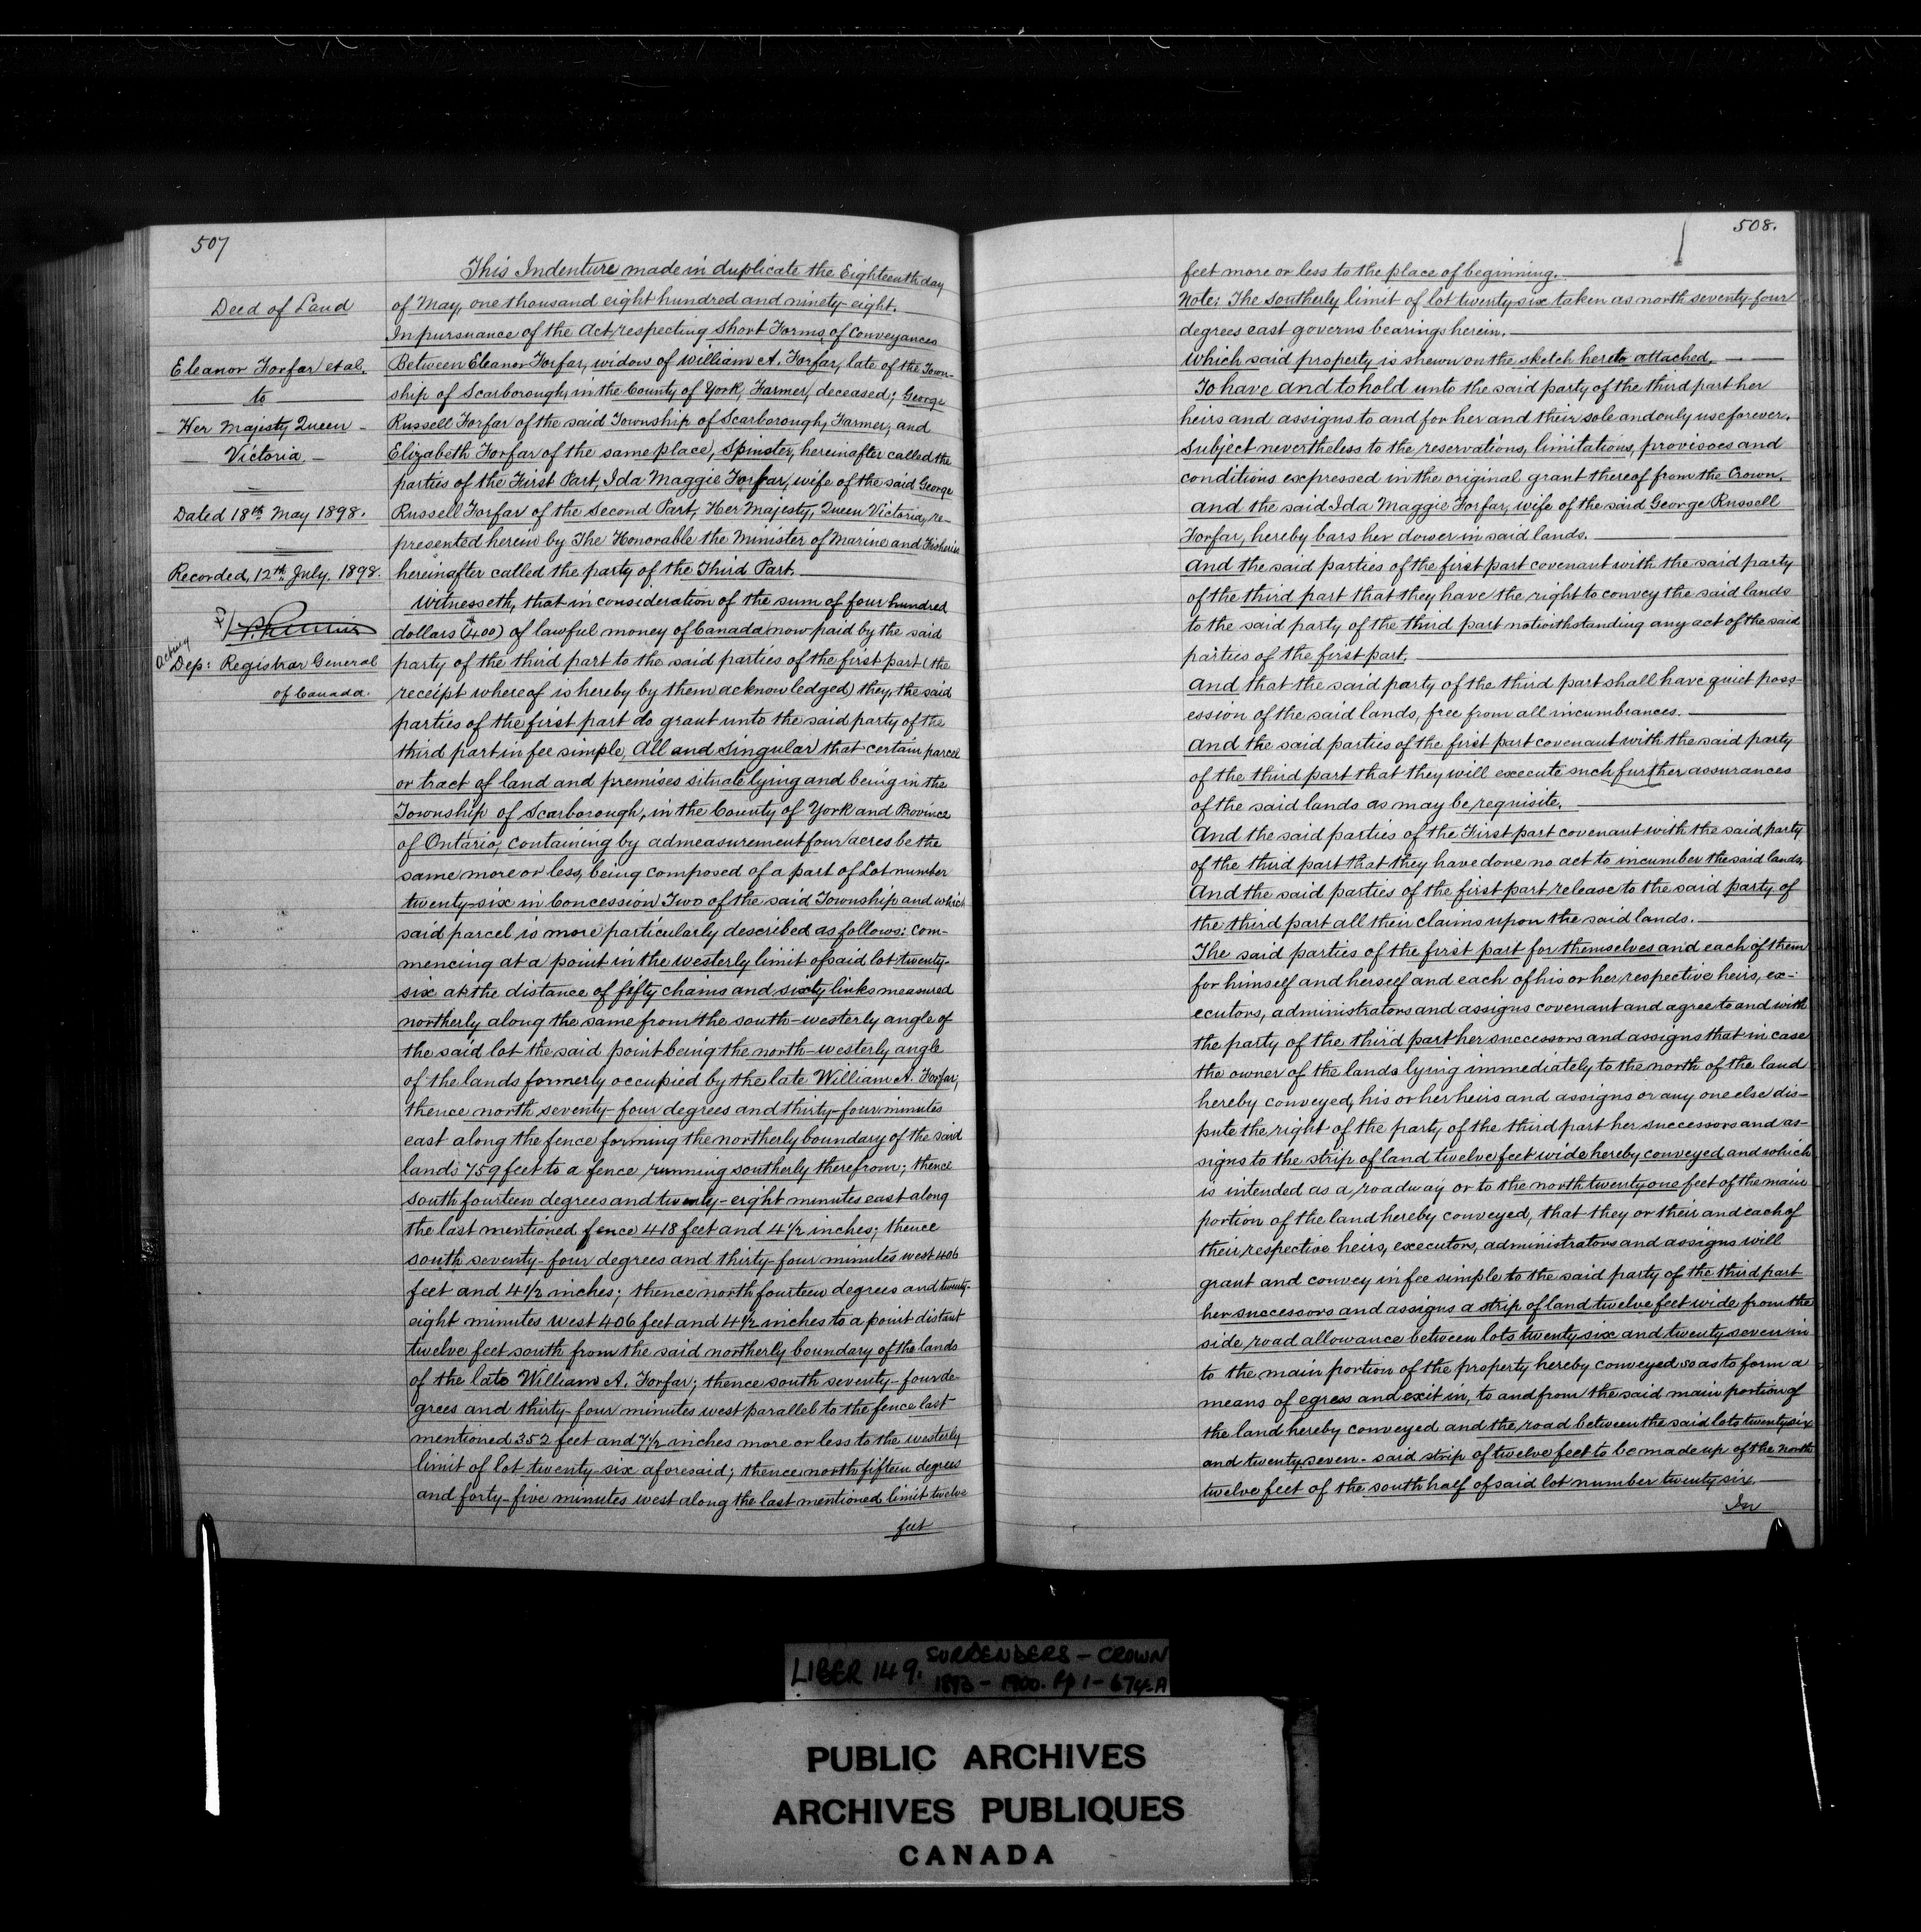 507
Deed of Land
Eleanor Forfar et al.
to
Her Majesty Queen
Victoria.
Dated 18th May 1898.
Recorded, 12th July, 1898.
Acting
Dep: Registrar General
of Canada.
This Indenture made in duplicate the Eighteenth day
of May, one thousand eight hundred and ninety-eight.
In pursuance of the Act respecting Short Forms of Conveyances
Between Eleanor Forfar, widow of William A. Forfar, late of the Town-
ship of Scarborough, in the County of York, Farmer, deceased; George
Russell Forfar of the said Township of Scarborough, Farmer, and
Elizabeth Forfar of the same place, Spinster, hereinafter called the
parties of the First Part, Ida Maggie Forfar, wife of the said George
Russell Forfar of the Second Part, Her Majesty, Queen Victoria, re-
presented herein by The Honorable the Minister of Marine and Fisheries
hereinafter called the party of the Third Part.
Witnesseth, that in consideration of the sum of four hundred
dollars ($400) of lawful money of Canada now paid by the said
party of the third part to the said parties of the first part (the
receipt whereof is hereby by them acknowledged) they, the said
parties of the first part do grant unto the said party of the
third part in fee simple, All and Singular that certain parcel
or tract of land and premises situate lying and being in the
Township of Scarborough, in the County of York and Province
of Ontario, containing by admeasurement four acres be the
same more or less, being composed of a part of Lot number
twenty-six in Concession Two of the said Township and which
said parcel is more particularly described as follows: Com-
mencing at a point in the westerly limit of said lot twenty-
six at the distance of fifty chains and sixty links measured
northerly along the same from the south-westerly angle of
the said lot the said point being the north-westerly angle
of the lands formerly occupied by the late William A. Forfar;
thence north seventy-four degrees and thirty-four minutes
east along the fence forming the northerly boundary of the said
lands 759 feet to a fence running southerly therefrom; thence
south fourteen degrees and twenty-eight minutes east along
the last mentioned fence 418 feet and 4 1/2 inches; thence
south seventy-four degrees and thirty-four minutes west 406
feet and 4 1/2 inches; thence north fourteen degrees and twenty-
eight minutes west 406 feet and 4 1/2 inches to a point distant
twelve feet south from the said northerly boundary of the lands
of the late William A. Forfar; thence south seventy-four de-
grees and thirty-four minutes west parallel to the fence last
mentioned 352 feet and 7 1/2 inches more or less to the westerly
limit of lot twenty-six aforesaid; thence north fifteen degrees
and forty-five minutes west along the last mentioned limit twelve
feet
508.
feet more or less to the place of beginning.
Note: The southerly limit of lot twenty six taken as north seventy-four
degrees east governs bearings herein.
Which said property is shewn on the sketch hereto attached.
To have and to hold unto the said party of the third part her
heirs and assigns to and for her and their sole and only use forever.
Subject nevertheless to the reservations, limitations, provisoes and
conditions expressed in the original grant thereof from the Crown.
And the said Ida Maggie Forfar, wife of the said George Russell
Forfar, hereby bars her dower in said lands.
And the said parties of the first part covenant with the said party
of the third part that they have the right to convey the said lands
to the said party of the third part notwithstanding any act of the said
parties of the first part.
And that the said party of the third part shall have quiet poss-
ession of the said lands, free from all incumbrances.
And the said parties of the first part covenant with the said party
of the third part that they will execute such further assurances
of the said lands as may be requisite.
And the said parties of the First part covenant with the said party
of the third part that they have done no act to incumber the said lands,
And the said parties of the first part release to the said party of
the third part all their claims upon the said lands.
The said parties of the first part for themselves and each of them
for himself and herself and each of his or her respective heirs, ex-
ecutors, administrators and assigns covenant and agree to and with
the party of the third part her successors and assigns that in case
the owner of the lands lying immediately to the north of the land
hereby conveyed, his or her heirs and assigns or any one else dis-
pute the right of the party of the third part her successors and as-
signs to the strip of land twelve feet wide hereby conveyed and which
is intended as a roadway or to the north twenty one feet of the main
portion of the land hereby conveyed, that they or their and each of
their respective heirs, executors, administrators and assigns will
grant and convey in fee simple to the said party of the third part
her successors and assigns a strip of land twelve feet wide from the
side road allowance between lots twenty six and twenty seven in
to the main portion of the property hereby conveyed so as to form a
means of egress and exit in, to and from the said main portion of
the land hereby conveyed and the road between the said lots twenty six
and twenty seven - said strip of twelve feet to be made up of the north
twelve feet of the south half of said lot number twenty six.
In
LIBER 149. SURRENDERS - CROWN
1893 - 1900. Pp 1 - 674-A
PUBLIC ARCHIVES
ARCHIVES PUBLIQUES
CANADA